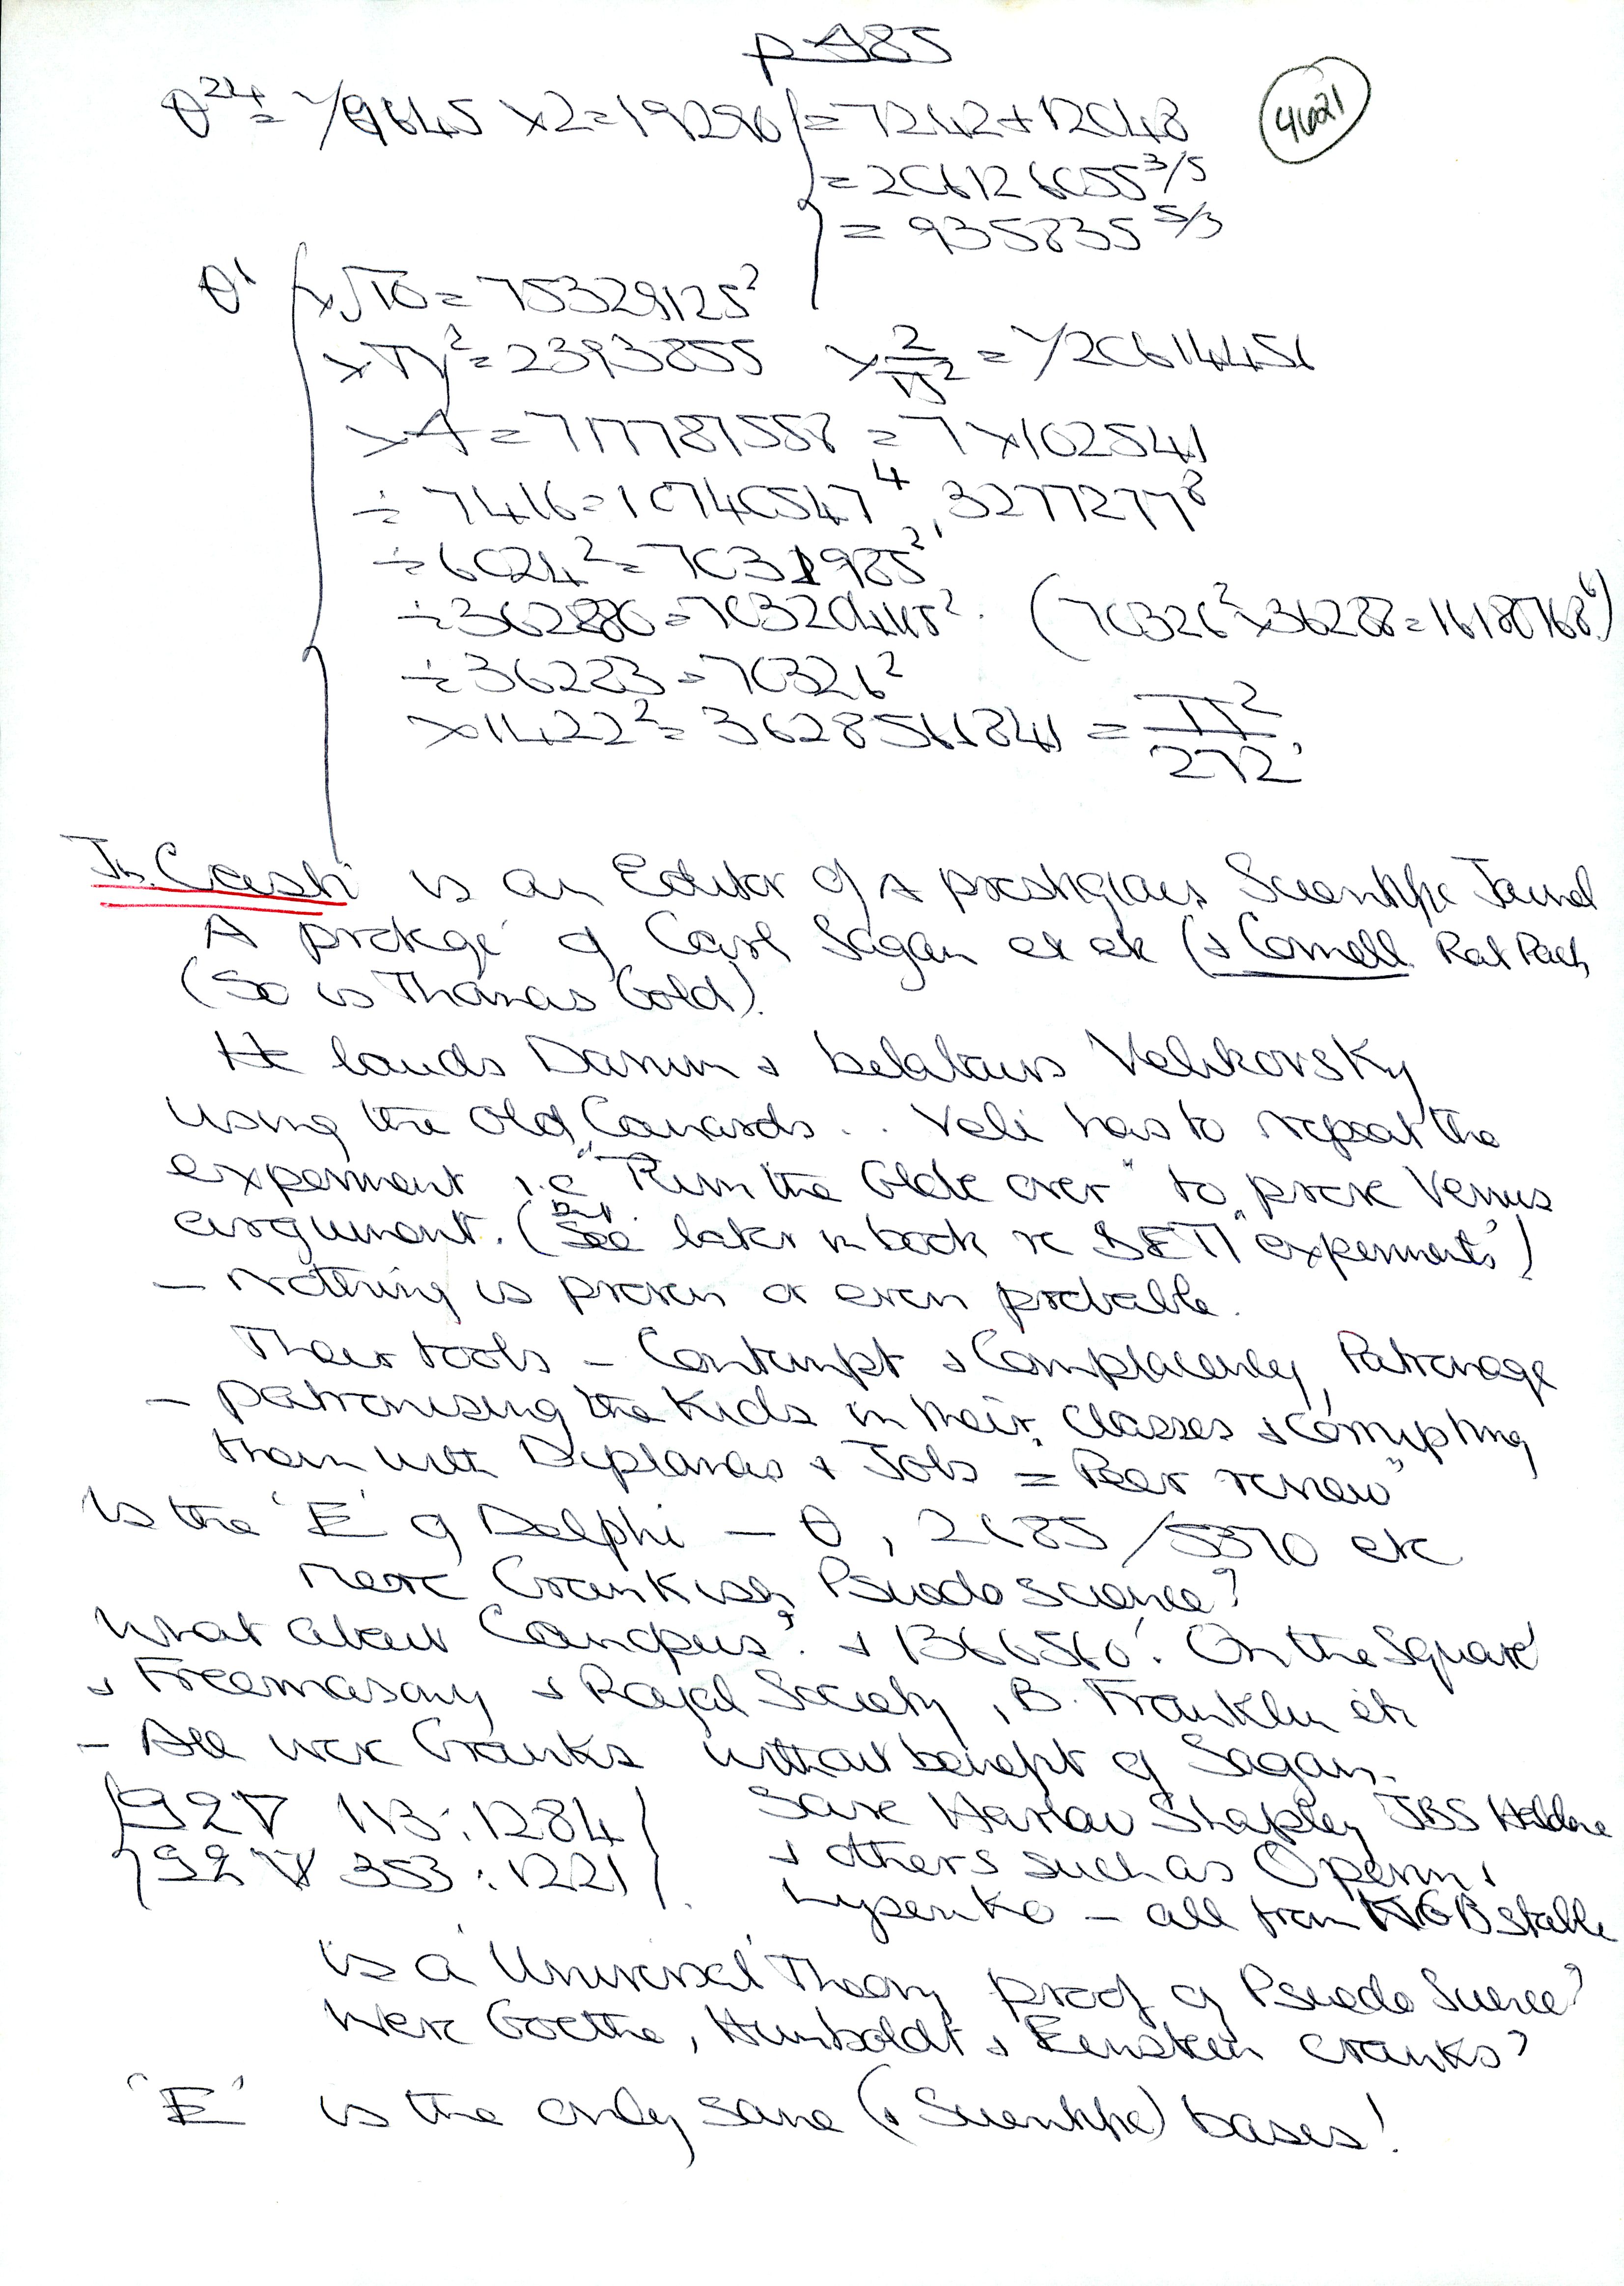 p 485
4621
θ²⁴ = 1/9645 ×2 = 19290 = 7242 + 12048
= 206126055 3/5
= 935835 5/3
θ' ×√10 = 75329125²
×π² = 2393855 × 2/π² = 1/20614451
×4 = 717781558 = 7 × 102541
÷ 7416 = 10740547⁴, 3277277⁸
÷ 6024² = 7031985²
÷ 362880 = 70320445². (70326² × 36288 = 16180768⁶)
÷ 36223 = 70326²
× 11422² = 3628561841 = π²/272
is an Editor of a prestigious Scientific Journal
A protege of Carl Sagan et ek (& Cornell Rat Pack
(So is Thomas Gold).
He lauds Darwin & belabours Velikovsky
using the Old Canards .. Veli has to repeat the
experiment i.e "Turn the Globe over" to prove Venus
argument. (But See later in book re SETI "experiments")
— Nothing is proven or even probable.
Their tools — Contempt & Complacency, Patronage
— patronising the Kids in their classes & corrupting
them with Diplomas & Jobs = Peer review"
Is the 'E' of Delphi — θ, 2685/5370 etc
mere Crankish Psuedo science?
What about Canopus? & 1366560! On the Square
& Freemasonry & Royal Society, B. Franklin etc
— All were Cranks without benefit of Sagan.
92∇ 113:1284
92 ∇ 353:1221
Save Harlow Shapley JBS Haldane
& others such as Oparin &
Lysenko — all from KGB stable
is a 'Universal' Theory proof of Psuedo Science?
Were Goethe, Humboldt & Einstein cranks?
'E' is the only sane (& Scientific) bases!